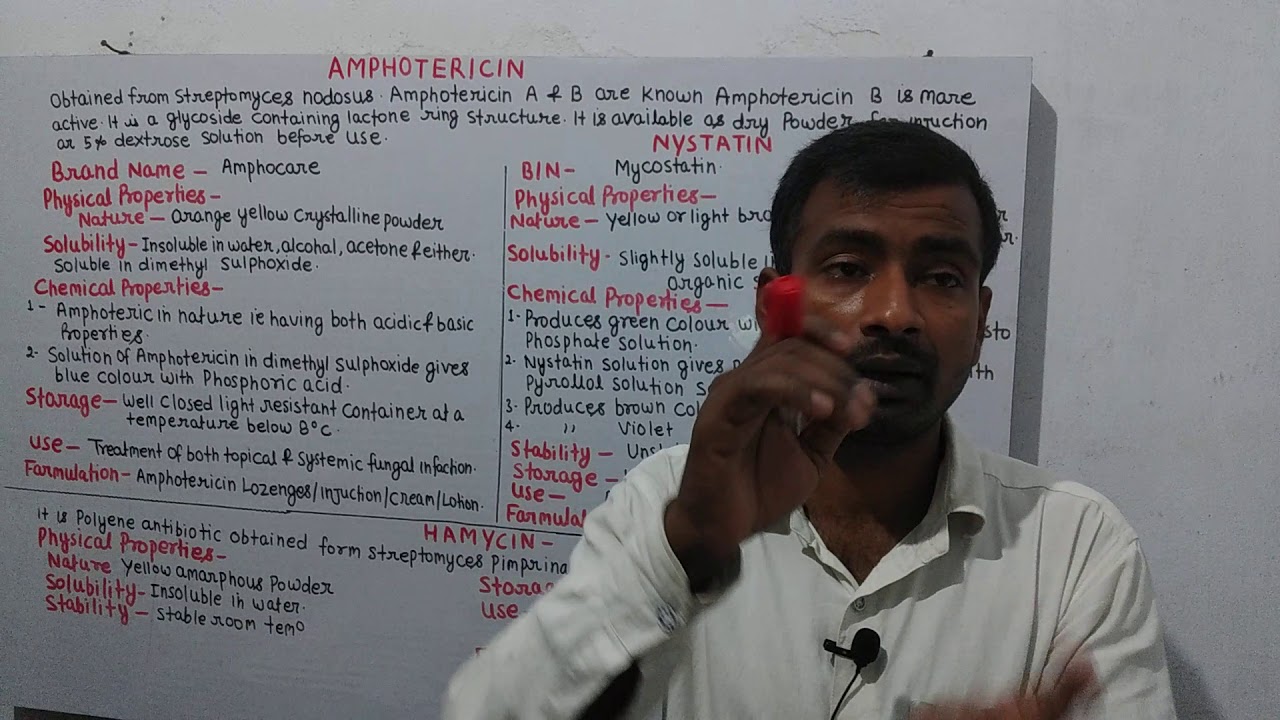 AMPHOTERICIN
Obtained from Streptomyces nodosus. Amphotericin A & B are known Amphotericin B is mare
active. It is a glycoside containing lactone ring structure. It is available as dry Powder for injuction
or 5% dextrose solution before use.
Brand Name - Amphocare
Physical Properties -
Nature - Orange yellow Crystalline powder
Solubility - Insoluble in water, alcohal, acetone & either.
Soluble in dimethyl sulphoxide.
Chemical Properties -
1- Amphoteric in nature ie having both acidic & basic
Properties.
2- Solution of Amphotericin in dimethyl sulphoxide gives
blue colour with Phosphoric acid.
Storage - well closed light resistant container at a
temperature below 8°c.
Use - Treatment of both topical & systemic fungal infaction.
Farmulation - Amphotericin Lozenges/injuction/cream/Lotion.
NYSTATIN
B/N - Mycostatin.
Physical Properties -
Nature - Yellow or light
Solubility - slightly soluble
organic
Chemical Properties -
1- Produces green colour
Phosphate solution.
2- Nystatin solution gives
Pyrollol solution
3- Produces brown
4- ,, Violet
Stability -
Storage -
Use -
HAMYCIN -
it is Polyene antibiotic obtained form streptomyces
Physical Properties -
Nature Yellow amarphous Powder
Solubility - Insoluble in water.
Stability - stable room temp
Use